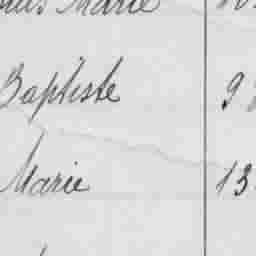 Marie
Baptiste 9
Marie 13